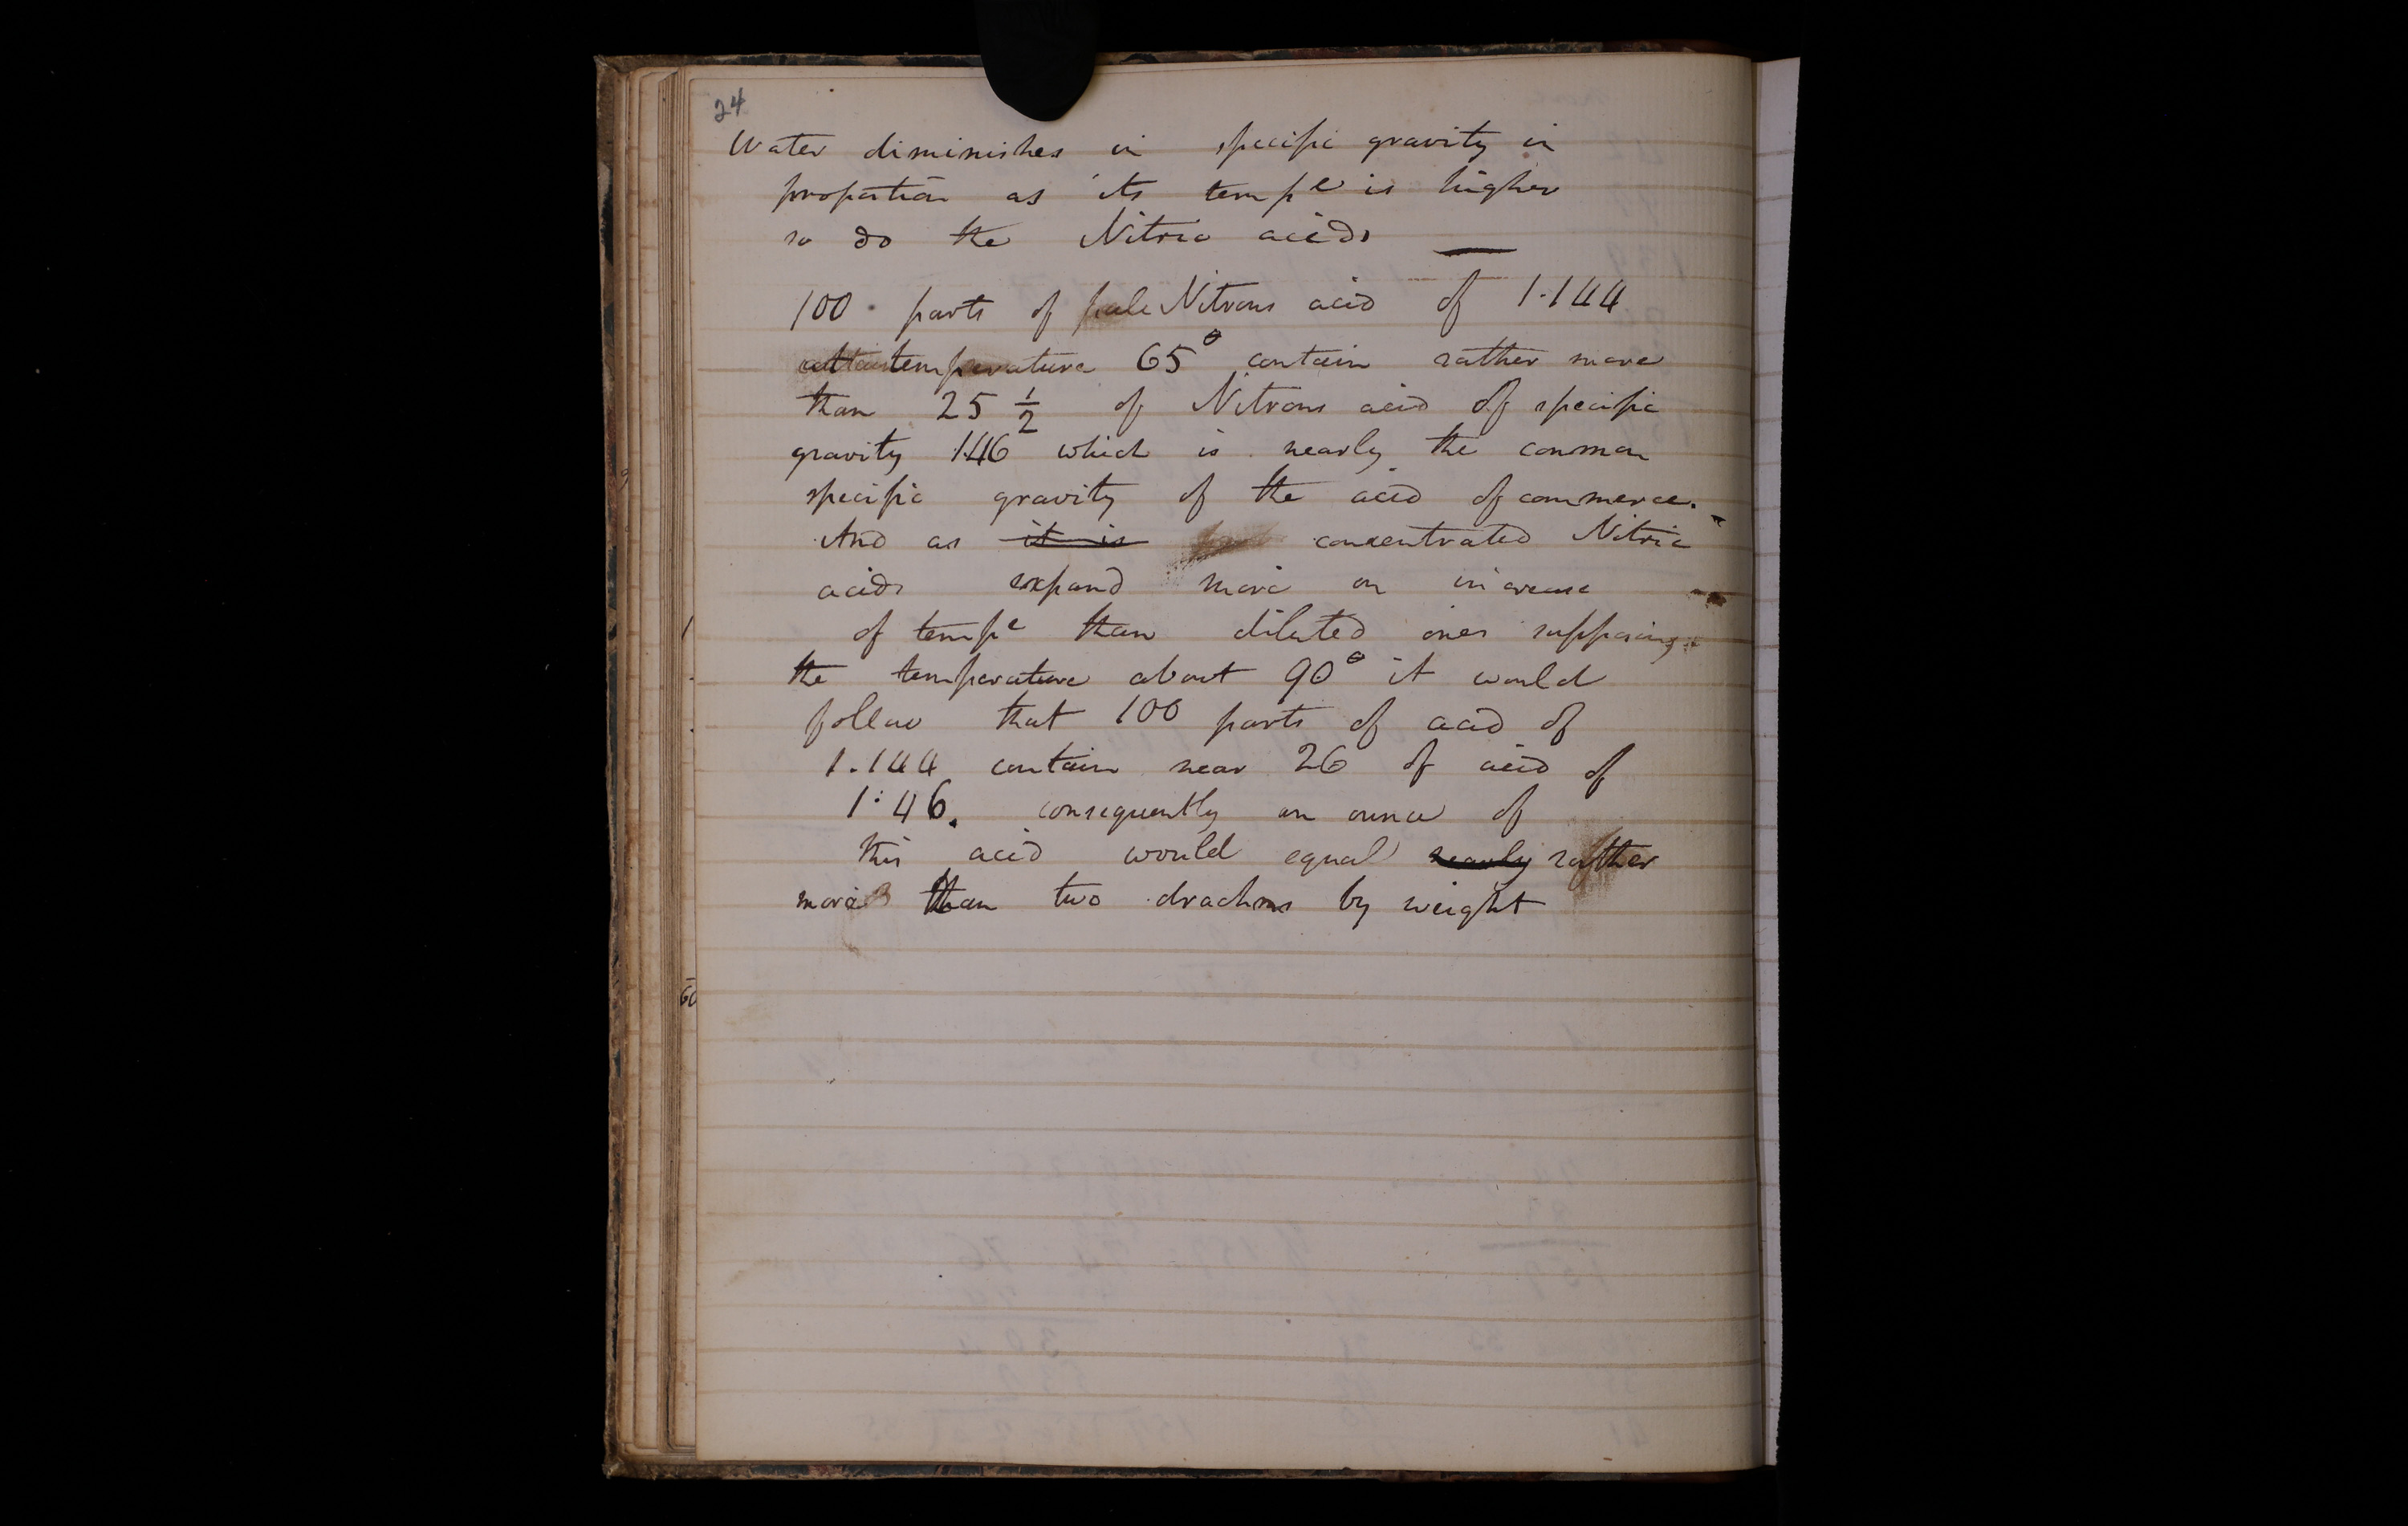 24
Water diminishes in specific gravity in
proportion as its tempe is higher
so do the Nitric acids —
100 parts of pale Nitrous acid of 1.144
at temperature 65° contain rather more
than 25 1/2 of Nitrous acid of specific
gravity 1.46 which is nearly the common
specific gravity of the acid of commerce.
And as it is concentrated Nitric
acids expand more on increase
of tempe than diluted ones supposing
the temperature about 90° it would
follow that 100 parts of acid of
1.144 contain near 26 of acid of
1.46. consequently an ounce of
this acid would equal nearly rather
more than two drachms by weight